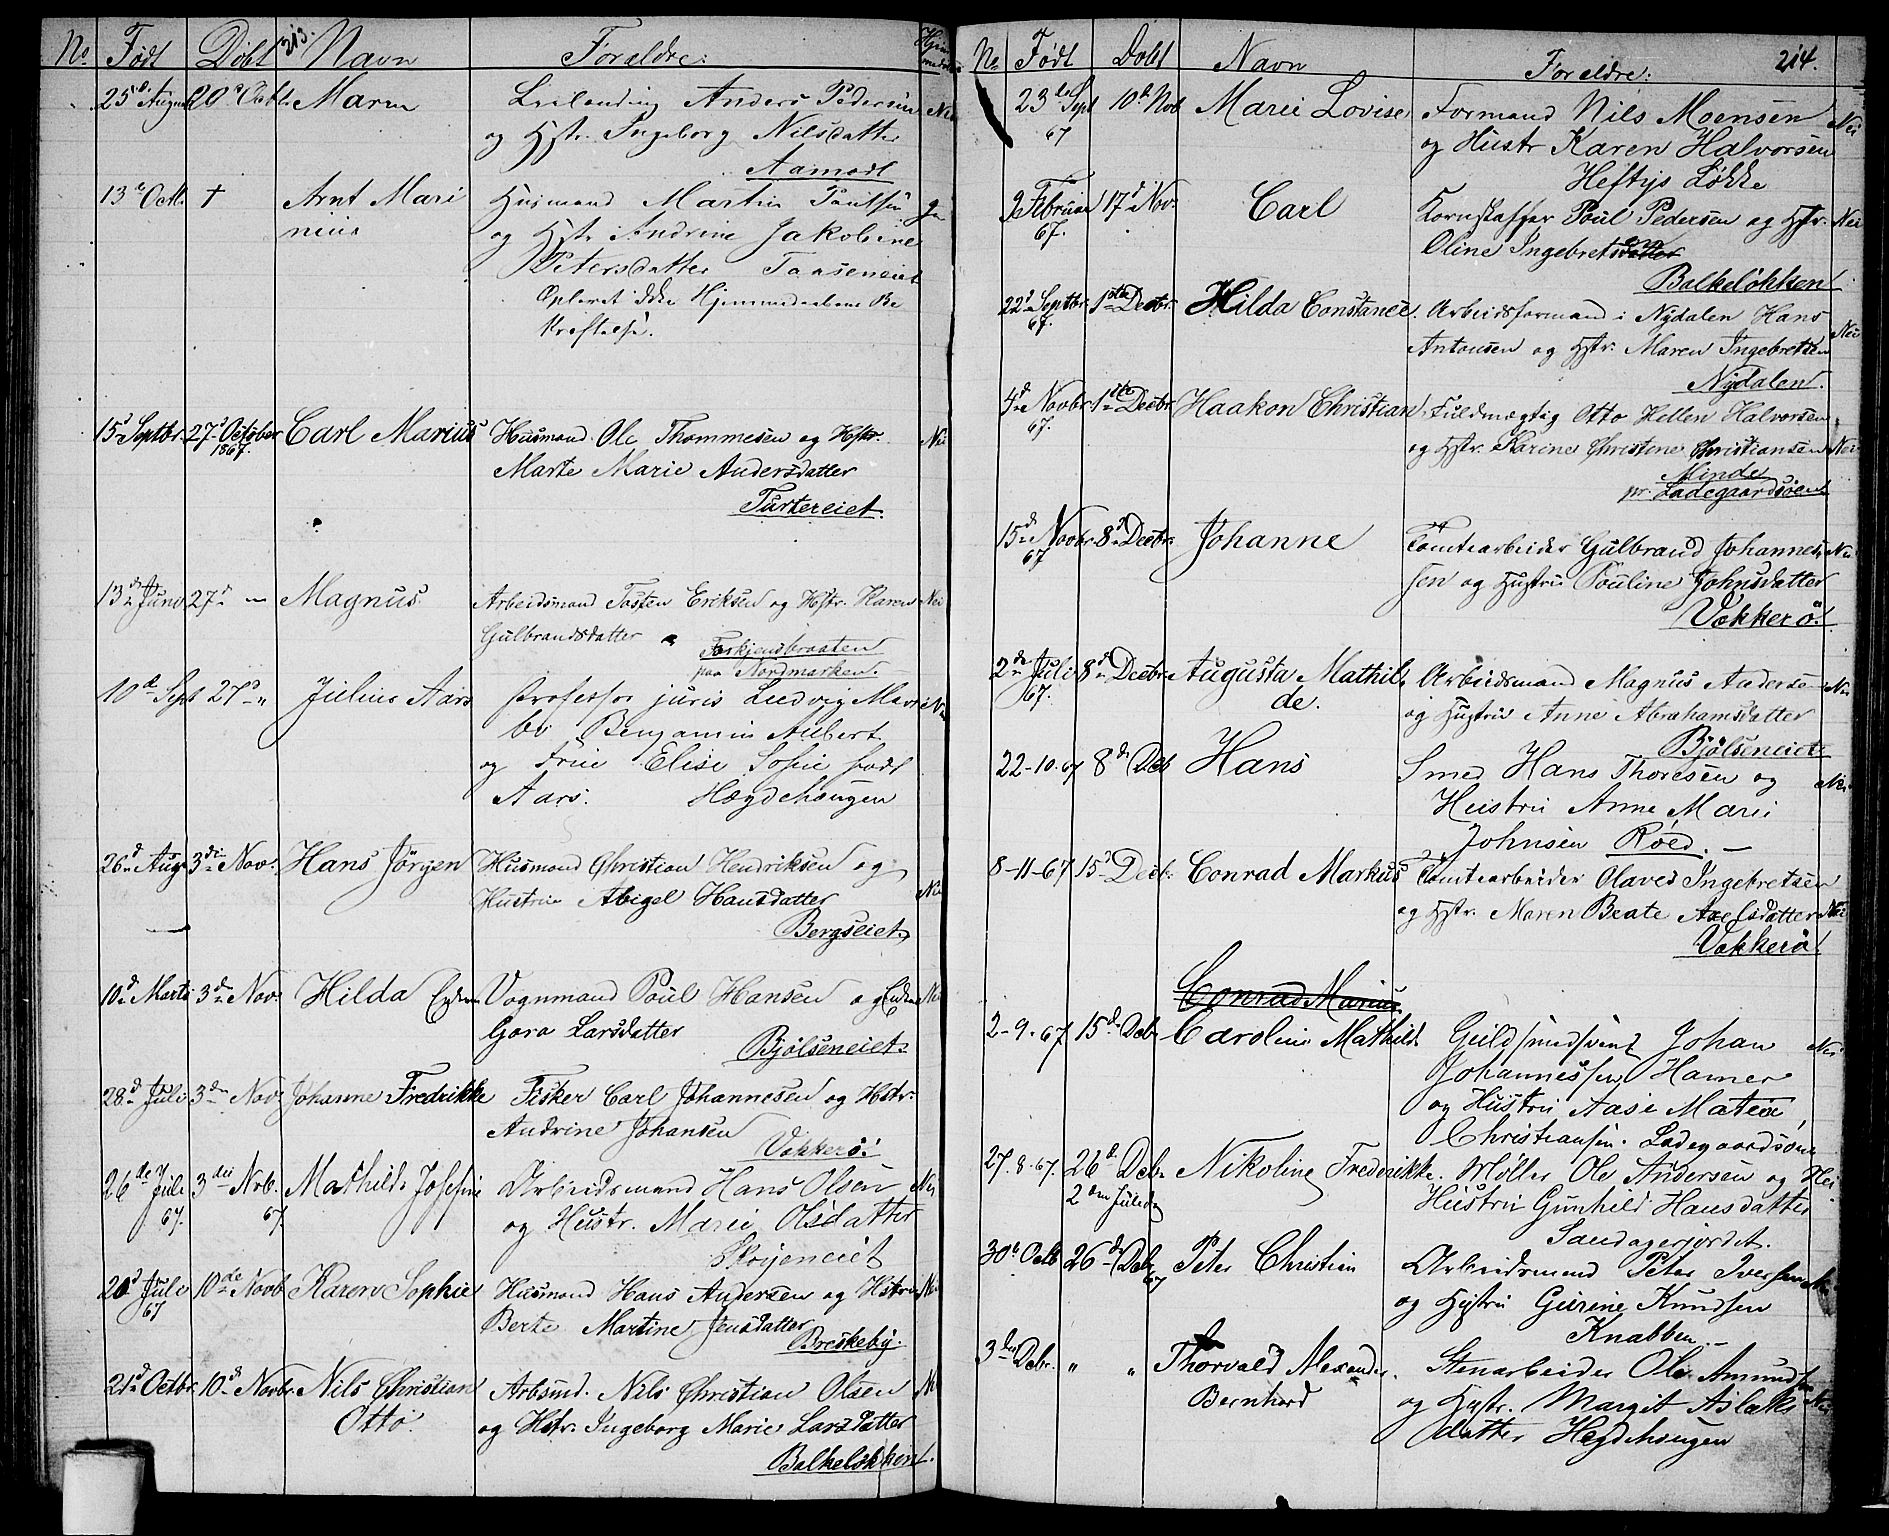 No. Født Døbt 313. Navn Forældre: Hjemmedøbt
25d August 20d Octbr Maren Leilending Anders Pedersen Nei
og Hstr. Ingeborg Nilsdatter
Aamodt
13d Octb. † Arnt Mari Husmand Martin Paulsen ja
nius og Hstr. Andrine Jakobine
Petersdatter Taaseneiet
Oplevet ikke Hjemmedaabens Be
kræftelse.
15d Septbr. 27d October Carl Marius Husmand Ole Thommesen og Hstr. Nei
1867. Marte Marie Andersdatter
Turtereiet.
13d Juni 27d — Magnus. Arbeidsmand Tosten Eriksen og Hstr. Karen Nei
Gulbrandsdatter
paa Nordmarken.
10d Sept 27d " Julius Aars Professor juris Ludvig Mari Nei
bo Benjamin Aubert
og Frue Elise Sofie født
Aars. Hægdehaugen
26d Aug. 3die Nov. Hans Jörgen Husmand Christian Hendriksen og
Hustrue Abigel Hansdatter Nei
Bergseiet.
10d Marts 3die Nov. Hilda Vognmand Poul Hansen og Nei
Larsdatter
Bjølseneiet.
28d Juli 3die Nov. Johanne Fredrikke Fisker Carl Johannesen og Hstr.
Andrine Johansen
Vækkerø.
26de Juli 3die Nvb. Mathilde Josefine Arbeidsmand Hans Olsen Nei
67. 67. og Hustr. Marie Olsdatter
Skøyeneiet
20d Juli 10de Novb Karen Sophie Husmand Hans Andersen og Hstr. Nei
67 Berte Martine Jensdatter
Breskeby.
21d Octbr. 10d Novbr. Nils Christian Arbsmd. Nils Christian Olsen Nei
Otto. og Hstr. Ingeborg Marie Larsdatter
Balkeløkken.
No. Født Døbt Navn Forældre: 214.
23de Sept 10d Nov Marie Lovise Formand Nils Moensen Nei
67 og Hustr Karen Halvorsen
Heftys Løkke
9 Februar 17d Nov. Carl Kornstaffer Poul Pedersen og Hstr. Nei
67. Oline Ingebretsdatter
Balkeløkken
22d Septbr. 1ste Decbr. Hilda Constance. Arbeidsformand i Nydalen Hans
67. Antonsen og Hstr. Maren Ingebretsen Nei
Nydalen.
4d Novbr. 1ste Decbr. Haakon Christian Fuldmægtig Otto Hellen Halvorsen
67. og Hstr. Karine Christine Christiansen Nei
Minde
pr. Ladegaardsøen
15d Novbr. 8d Decbr. Johanne Tomtearbeider Gulbrand Johannes Nei
67 sen og Hustru Pouline Johnsdatter
Vækkerø.
2den Juli 8d Decbr. Augusta Mathil Arbeidsmand Magnus Andersen Nei
67. de. og Hustru Anne Abrahamsdatter
Bjølseneiet
22-10-67 8de Deb Hans Smed Hans Thoresen og Nei
Hustru Anne Marie
Johnsen Røed. —
8-11-67 15d Decb. Conrad Markus Tomtearbeider Olaves Ingebretsen
og Hstr. Maren Beate Axelsdatter Nei
Vækkerø.
Conrad Marius
2-9-67 15de Deb. Caroline Mathilde Guldsmedsvend Johan Nei
Johannessen Hamer
og Hustru Aase Matea
Christiansen. Ladegaardsøen
27.8-67. 26d Deb. Nikoline Frederikke. Møller Ole Andersen og Nei
2den Juledag Hustru Gunhild Hansdatter
Sandagerjordet.
30te Octb 26de Deb. Peter Christian Arbeidsmand Peter Iversen Nei
67 og Hustru Gurine Knudsen
Knabben. —
3die Debr. " " Thorvald Alexander Stenarbeider Ole Amundsen
Bernhard og Hustr. Margit Aslaks Nei
datter Hegdehaugen